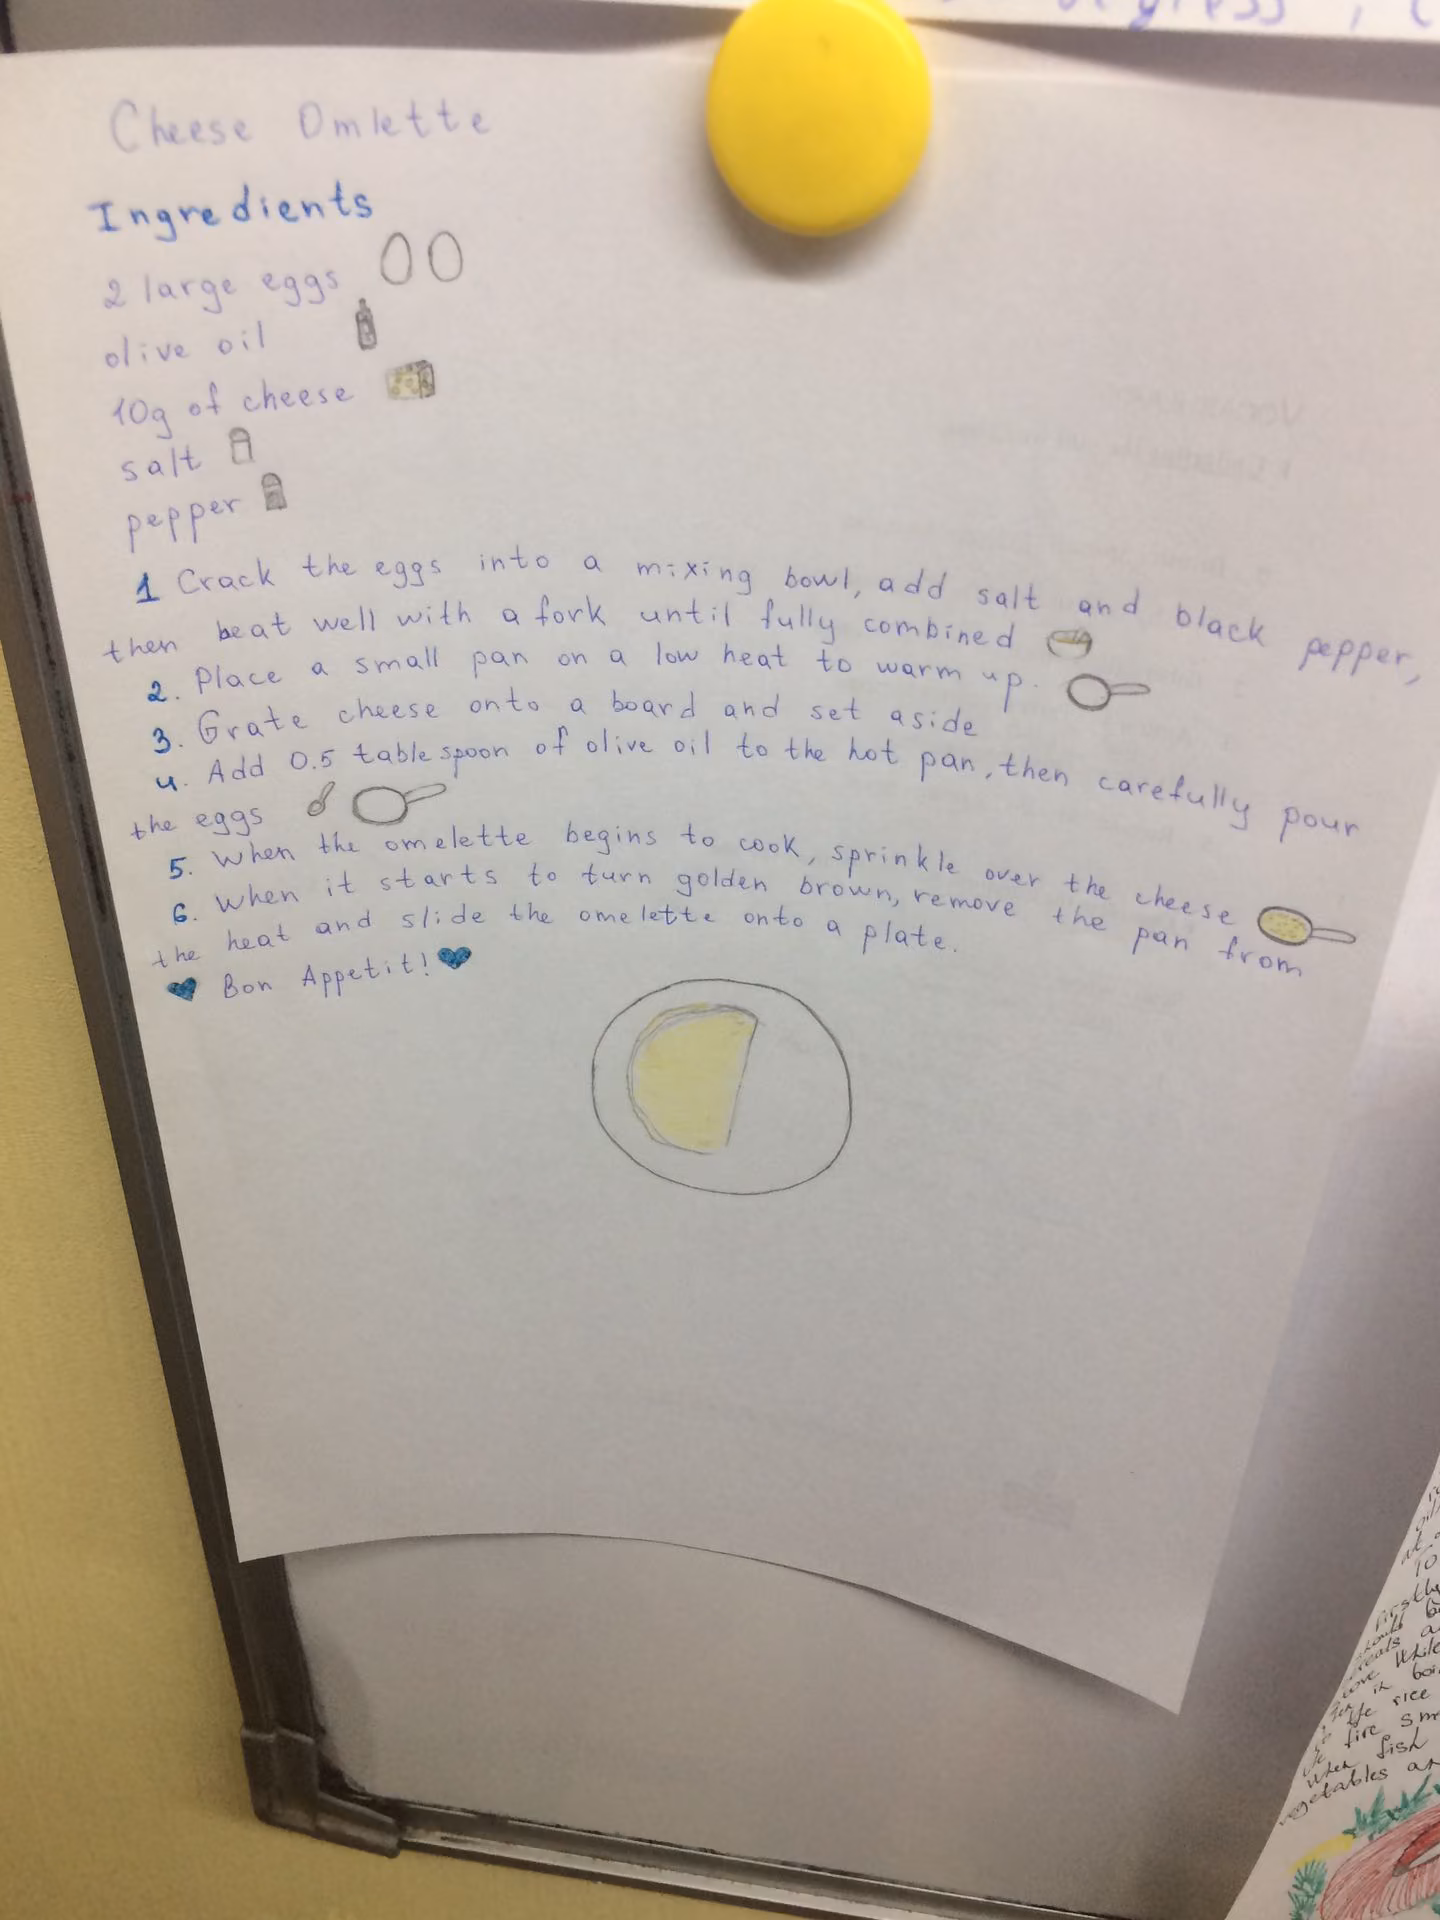 Cheese Omlette
Ingredients
2 large eggs
olive oil
10g of cheese
salt
pepper
1 Crack the eggs into a mixing bowl, add salt and black pepper,
then beat well with a fork until fully combined
2. Place a small pan on a low heat to warm up.
3. Grate cheese onto a board and set aside
4. Add 0.5 tablespoon of olive oil to the hot pan, then carefully pour
the eggs
5. When the omelette begins to cook, sprinkle over the cheese
6. When it starts to turn golden brown, remove the pan from
the heat and slide the omelette onto a plate.
Bon Appetit!
rice
fire
when fish